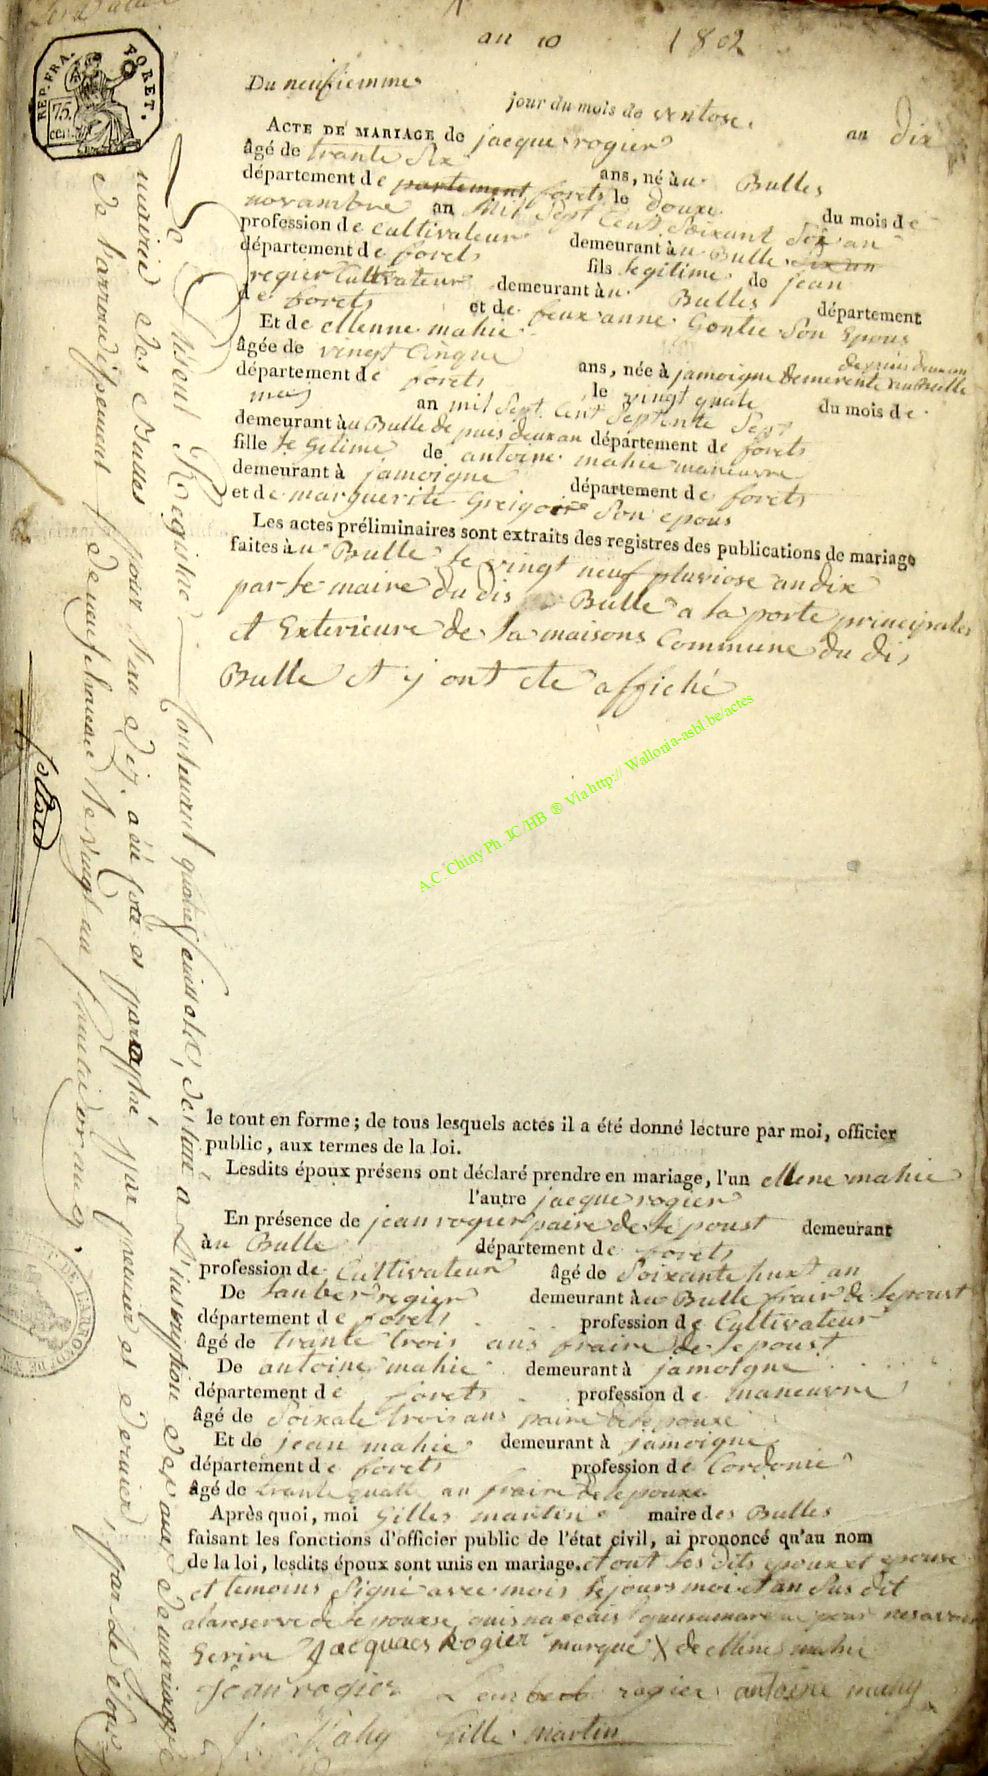 an 10 1802
REP. FRA. FORET.
75. cen.
Du neufiemme
jour du mois de ventose. an dix
ACTE DE MARIAGE de jacque rogier
âgé de trante six ans, né à u Bulles
département de partement forets le douxe du mois de
novambre an mil sept cent soixant six an
profession de cultivateur demeurant à u Bulle six an
département de forets fils legitime de jean
regier Cultivateur demeurant à u Bulles département
de forets et de feux anne Gontie son Epous
Et de ellenne mahie
depuis deux an
âgée de vingt Cinque ans, née à jamoigne demerente au Bulle
département de forets le vingt quate du mois de
meij an mil sept cent septente sept
demeurant à u Bulle de puis deux an département de forets
fille le Gitime de antoine mahie maneuvre
demeurant à jamoigne département de forets
et de marguerite Greigoire son epous
Les actes préliminaires sont extraits des registres des publications de mariage
faites à u Bulle le vingt neuf pluviose an dix
par le maire du dis Bulle a la porte principales
et Exterieure de la maisons Commune du dis
Bulle et y ont ete affiché
A.C. Chiny Ph. JC/HB ® Via http:// Wallonia-asbl.be/actes
le tout en forme; de tous lesquels actes il a été donné lecture par moi, officier
public, aux termes de la loi.
Lesdits époux présens ont déclaré prendre en mariage, l'un ellene mahie
l'autre jacque rogier
En présence de jean rogier paire de lepoust demeurant
à u Bulle département de forets
profession de Cultivateur âgé de soixante huxt an
De lauber regier demeurant à u Bulle frair de lepoust
département de forets profession de Cultivateur
âgé de trante trois ans fraire de lepoust
De antoine mahie demeurant à jamoigne
département de forets profession de maneuvre
âgé de soixate trois ans paire de lepouxe
Et de jean mahie demeurant à jamoigne
département de forets profession de Cordonie
âgé de trante quatte an fraire de lepouxe
Après quoi, moi Gilles martin maire des Bulles
faisant les fonctions d'officier public de l'état civil, ai prononcé qu'au nom
de la loi, lesdits époux sont unis en mariage. et ont les dits epoux et epouse
et temoins signé avec mois le jours moi et an sus dit
a la reserve de lepouxse quis na fais quusa marque pour ne savoir
Ecrire Jacques Rogier marque X de ellene mahie
jean rogier Lambert rogier antoine mahy
J. Mahy Gille martin
Le présent Registre contenant quatre feuillets, destiné à l'inscription des actes de mariage
mairie des Bulles pour l'an dix, a été coté et paraphé par premier et dernier, par le
de l'arrondissement de neufchateau le vingt un fructidor an 9.